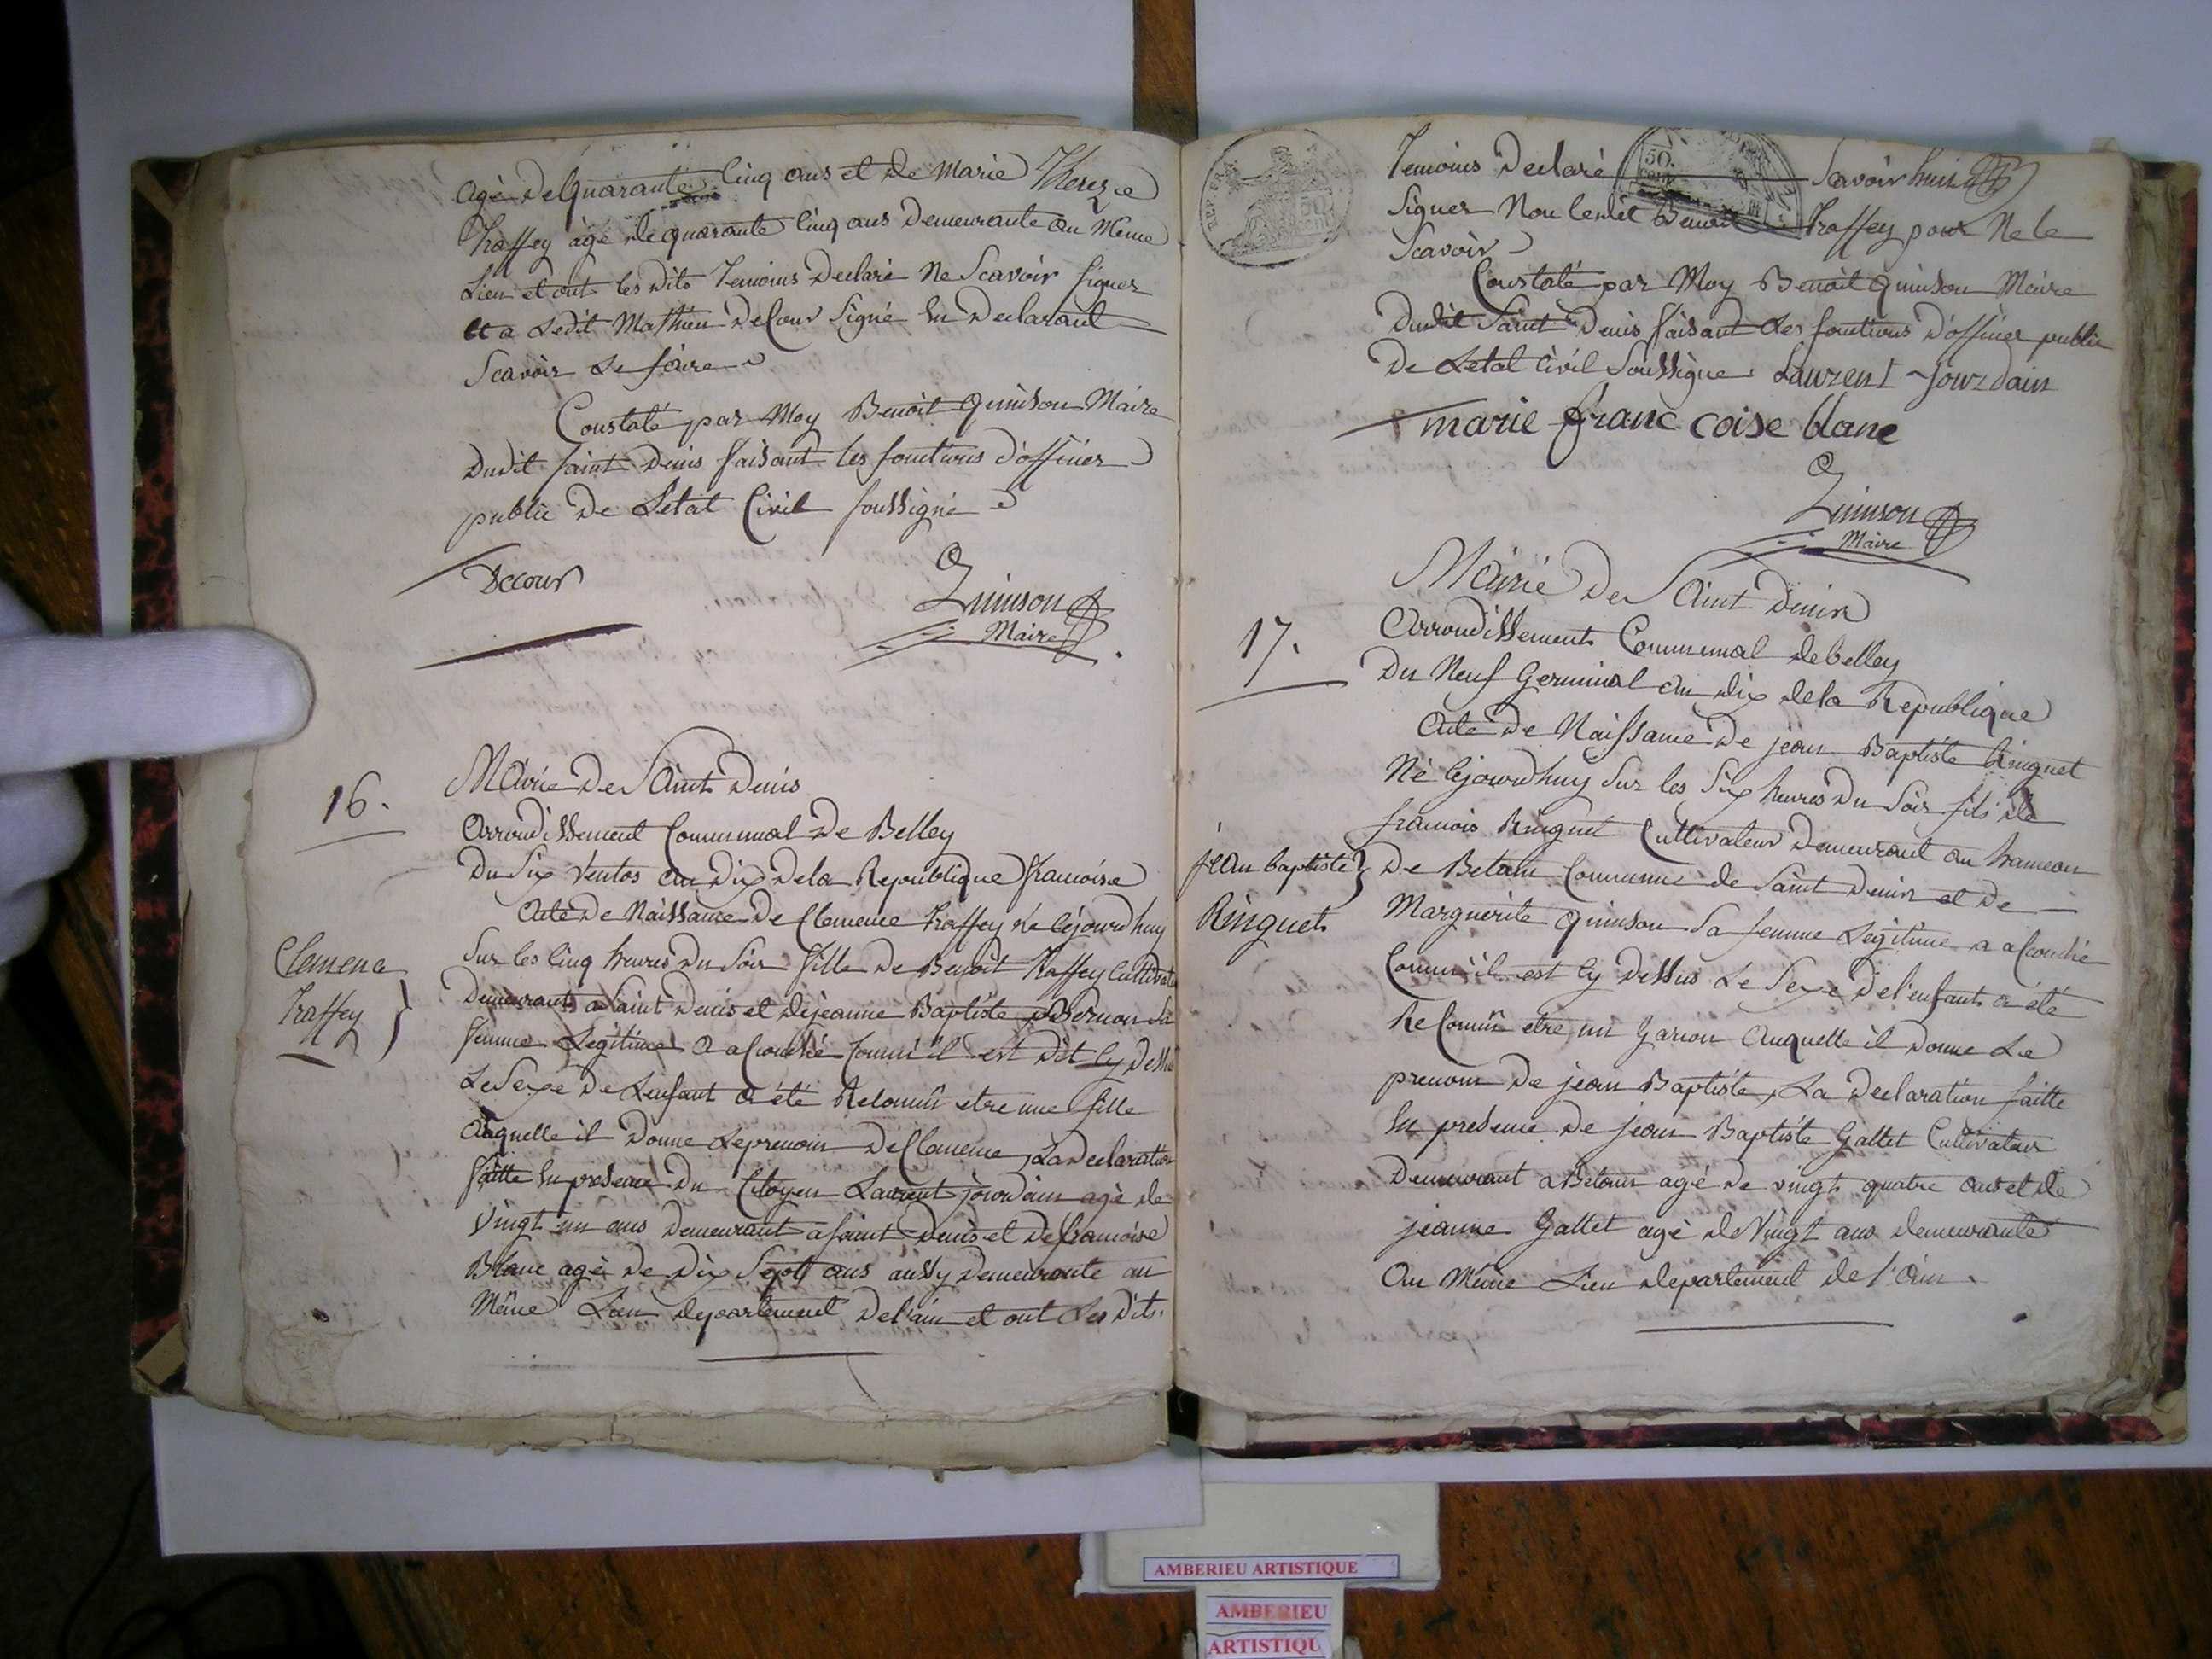 agé de quarante cinq ans et de Marie Therese
Traffey agé de quarante cinq ans demeurante au Meme
Lieu et ont les dits Temoins Declaré Ne Scavoir signer
et a Ledit Mathieu deCour Signé En Declarant
Scavoir Le faire
Constaté par Moy Benoit Quinson Maire
Dudit saint Denis faisant les fonctions d'officier
public De Letat Civil soussigné
Decour
Quinson
Maire
16.
Mairie De Saint Denis
Arrondissement Communal De Belley
Du Six Ventos an Dix De la Republique francoise
Acte De Naissance De Clemence Traffey né cejourdhuy
Sur les Cinq heures Du Soir fille De Benoit Traffey Cultivate
Clemence
Traffey
Demeurant a Saint Denis et de jeanne Baptiste Bernon Sa
femme Legitime a acouché comm'il est dit Cy Dessu
Le Sexe De Lenfant a été Reconnû etre une fille
auquelle il Donne Le prenom De Clamence, La declaration
faitte En presence Du Citoyen Laurent jourdain agé de
vingt un ans demeurant a saint Denis et De francoise
Blanc agé de Dix Sept ans aussy demeurante au
Même Lieu departement De l'ain et ont Les Dits
Temoins Declaré Scavoir
Signer Non Ledit Benoit Traffey pour Ne le
Scavoir
Constaté par Moy Benoit Quinson Maire
Dudit Saint Denis faisant Les fonctions D'officier public
De Letat Civil Soussigné Laurent Jourdain
marie franc coise blanc
Quinson
Maire
Mairie De Saint Denis
17.
Arrondissement Communal de belley
Du Neuf Germinal an dix de la Republique
Acte De Naissance De jean Baptiste Ringuet
Né Cejourdhuy Sur les Six heures Du Soir fils de
francois Ringuet Cultivateur Demeurant au hameau
jean baptiste
Ringuet
De Betain Commune de Saint Denis et De
Marguerite Quinson Sa femme Legitime a acouché
Comm'il est Cy Dessus Le Sexe De l'enfant a été
Reconnû etre un Garcon Auquelle il Donne Le
prenom De jean Baptiste, La Declaration faitte
En presence De jean Baptiste Gallet Cultivateur
Demeurant a Betain agé de vingt quatre ans et de
jeanne Gallet agé de Vingt ans demeurante
Au Même Lieu departement de l'ain
REP. FRA.
50.
AMBERIEU ARTISTIQUE
AMBERIEU
ARTISTIQU